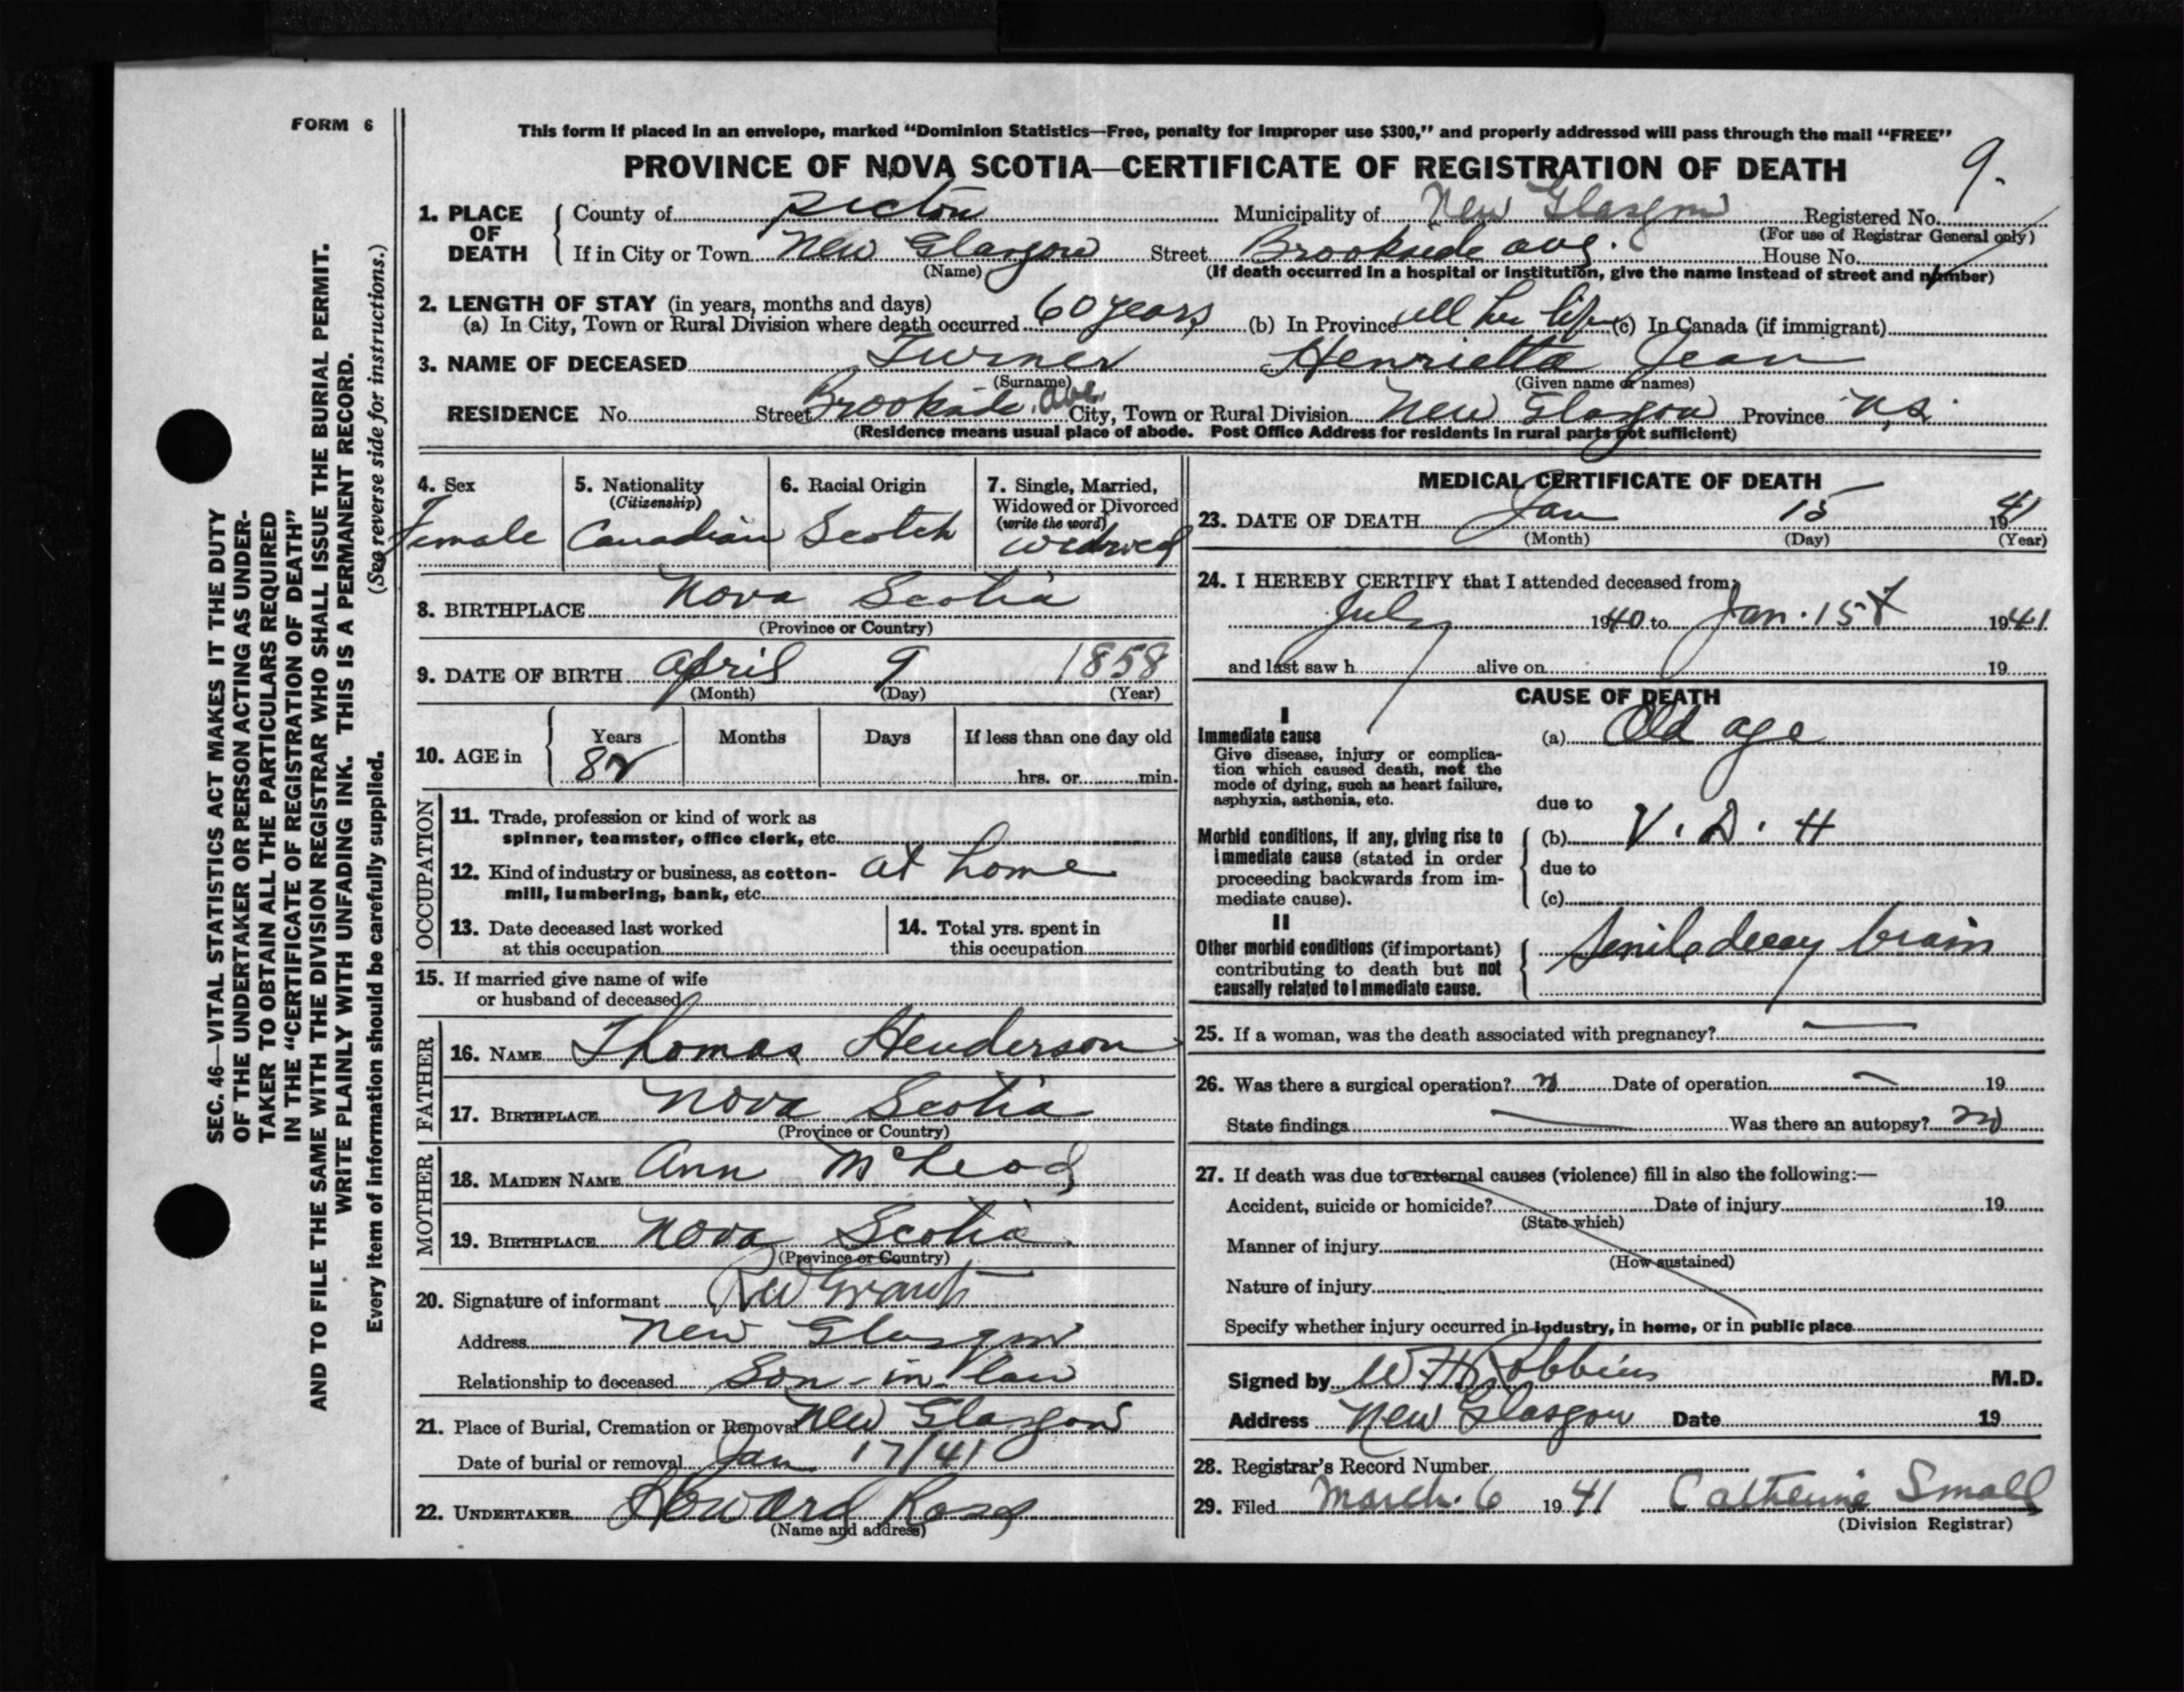 FORM 6
This form if placed in an envelope, marked "Dominion Statistics—Free, penalty for improper use $300," and properly addressed will pass through the mail "FREE"
PROVINCE OF NOVA SCOTIA—CERTIFICATE OF REGISTRATION OF DEATH
9.
1. PLACE OF DEATH
County of Pictou Municipality of New Glasgow Registered No.
(For use of Registrar General only)
If in City or Town New Glasgow Street Brookside ave. House No.
(Name) (If death occurred in a hospital or institution, give the name instead of street and number)
2. LENGTH OF STAY (in years, months and days)
(a) In City, Town or Rural Division where death occurred 60 years (b) In Province all her life (c) In Canada (if immigrant)
3. NAME OF DECEASED Turner Henrietta Jean
(Surname) (Given name or names)
RESIDENCE No. Street Brookside Ave. City, Town or Rural Division New Glasgow Province N.S.
(Residence means usual place of abode. Post Office Address for residents in rural parts not sufficient)
4. Sex
Female
5. Nationality
(Citizenship)
Canadian
6. Racial Origin
Scotch
7. Single, Married,
Widowed or Divorced
(write the word)
widowed
8. BIRTHPLACE Nova Scotia
(Province or Country)
9. DATE OF BIRTH April 9 1858
(Month) (Day) (Year)
10. AGE in
Years Months Days If less than one day old
82 hrs. or min.
OCCUPATION
11. Trade, profession or kind of work as
spinner, teamster, office clerk, etc.
12. Kind of industry or business, as cotton-
mill, lumbering, bank, etc. at home
13. Date deceased last worked
at this occupation
14. Total yrs. spent in
this occupation
15. If married give name of wife
or husband of deceased
FATHER
16. NAME Thomas Henderson
17. BIRTHPLACE Nova Scotia
(Province or Country)
MOTHER
18. MAIDEN NAME Ann McLeod
19. BIRTHPLACE Nova Scotia
(Province or Country)
20. Signature of informant Grant
Address New Glasgow
Relationship to deceased Son-in-law
21. Place of Burial, Cremation or Removal New Glasgow
Date of burial or removal Jan 17/41
22. UNDERTAKER Howard Ross
(Name and address)
MEDICAL CERTIFICATE OF DEATH
23. DATE OF DEATH Jan 15 1941
(Month) (Day) (Year)
24. I HEREBY CERTIFY that I attended deceased from:
July 1940 to Jan. 15 1941
and last saw h alive on 19
CAUSE OF DEATH
I
Immediate cause
Give disease, injury or complica-
tion which caused death, not the
mode of dying, such as heart failure,
asphyxia, asthenia, etc.
(a) Old age
due to
Morbid conditions, if any, giving rise to
immediate cause (stated in order
proceeding backwards from im-
mediate cause).
(b) V. D. H
due to
(c)
II
Other morbid conditions (if important)
contributing to death but not
causally related to immediate cause.
Senile decay brain
25. If a woman, was the death associated with pregnancy? —
26. Was there a surgical operation? Date of operation — 19
State findings — Was there an autopsy? no
27. If death was due to external causes (violence) fill in also the following:—
Accident, suicide or homicide? Date of injury 19
(State which)
Manner of injury
(How sustained)
Nature of injury
Specify whether injury occurred in industry, in home, or in public place
Signed by W H Robbins M.D.
Address New Glasgow Date 19
28. Registrar's Record Number
29. Filed March. 6 1941 Catherine Small
(Division Registrar)
SEC. 46—VITAL STATISTICS ACT MAKES IT THE DUTY
OF THE UNDERTAKER OR PERSON ACTING AS UNDER-
TAKER TO OBTAIN ALL THE PARTICULARS REQUIRED
IN THE "CERTIFICATE OF REGISTRATION OF DEATH"
AND TO FILE THE SAME WITH THE DIVISION REGISTRAR WHO SHALL ISSUE THE BURIAL PERMIT.
WRITE PLAINLY WITH UNFADING INK. THIS IS A PERMANENT RECORD.
Every item of information should be carefully supplied. (See reverse side for instructions.)